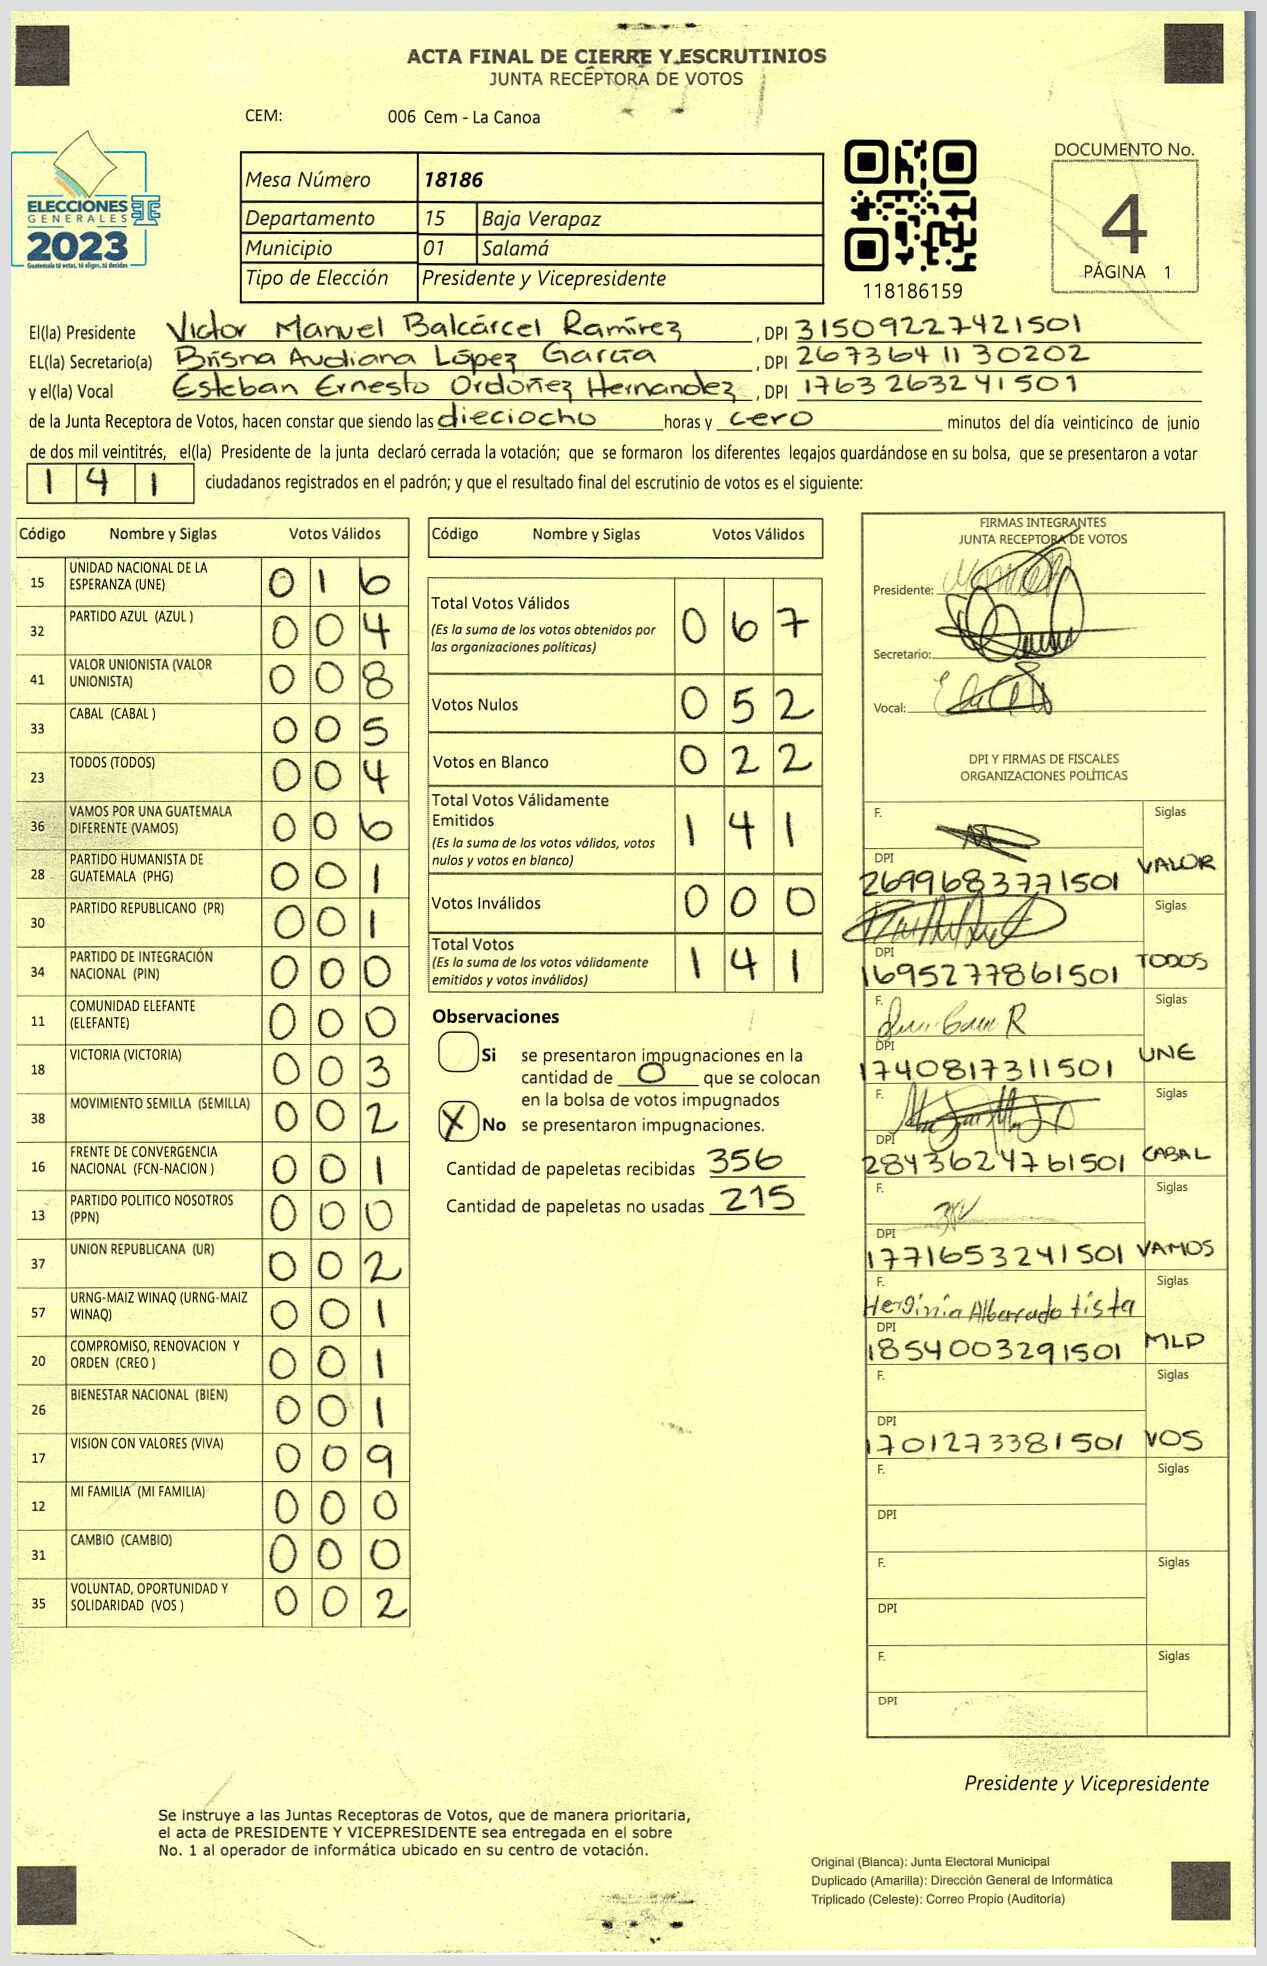 ACTA FINAL DE CIERRE Y ESCRUTINIOS
JUNTA RECEPTORA DE VOTOS
CEM: 006 Cem - La Canoa
ELECCIONES
GENERALES
2023
Guatemala tú votas, tú eliges, tú decides
Mesa Número 18186
Departamento 15 Baja Verapaz
Municipio 01 Salamá
Tipo de Elección Presidente y Vicepresidente
118186159
DOCUMENTO No.
4
PÁGINA 1
El(la) Presidente Victor Manuel Balcárcel Ramírez, DPI 31509227421501
EL(la) Secretario(a) Brisna Audiana López García, DPI 2673641130202
y el(la) Vocal Esteban Ernesto Ordoñez Hernandez, DPI 1763263241501
de la Junta Receptora de Votos, hacen constar que siendo las dieciocho horas y cero minutos del día veinticinco de junio
de dos mil veintitrés, el(la) Presidente de la junta declaró cerrada la votación; que se formaron los diferentes legajos guardándose en su bolsa, que se presentaron a votar
1 4 1 ciudadanos registrados en el padrón; y que el resultado final del escrutinio de votos es el siguiente:
Código Nombre y Siglas Votos Válidos
15 UNIDAD NACIONAL DE LA ESPERANZA (UNE) 0 1 6
32 PARTIDO AZUL (AZUL ) 0 0 4
41 VALOR UNIONISTA (VALOR UNIONISTA) 0 0 8
33 CABAL (CABAL ) 0 0 5
23 TODOS (TODOS) 0 0 4
36 VAMOS POR UNA GUATEMALA DIFERENTE (VAMOS) 0 0 6
28 PARTIDO HUMANISTA DE GUATEMALA (PHG) 0 0 1
30 PARTIDO REPUBLICANO (PR) 0 0 1
34 PARTIDO DE INTEGRACIÓN NACIONAL (PIN) 0 0 0
11 COMUNIDAD ELEFANTE (ELEFANTE) 0 0 0
18 VICTORIA (VICTORIA) 0 0 3
38 MOVIMIENTO SEMILLA (SEMILLA) 0 0 2
16 FRENTE DE CONVERGENCIA NACIONAL (FCN-NACION ) 0 0 1
13 PARTIDO POLITICO NOSOTROS (PPN) 0 0 0
37 UNION REPUBLICANA (UR) 0 0 2
57 URNG-MAIZ WINAQ (URNG-MAIZ WINAQ) 0 0 1
20 COMPROMISO, RENOVACION Y ORDEN (CREO ) 0 0 1
26 BIENESTAR NACIONAL (BIEN) 0 0 1
17 VISION CON VALORES (VIVA) 0 0 9
12 MI FAMILIA (MI FAMILIA) 0 0 0
31 CAMBIO (CAMBIO) 0 0 0
35 VOLUNTAD, OPORTUNIDAD Y SOLIDARIDAD (VOS ) 0 0 2
Código Nombre y Siglas Votos Válidos
Total Votos Válidos 0 6 7
(Es la suma de los votos obtenidos por
las organizaciones políticas)
Votos Nulos 0 5 2
Votos en Blanco 0 2 2
Total Votos Válidamente
Emitidos 1 4 1
(Es la suma de los votos válidos, votos
nulos y votos en blanco)
Votos Inválidos 0 0 0
Total Votos 1 4 1
(Es la suma de los votos válidamente
emitidos y votos inválidos)
Observaciones
Si se presentaron impugnaciones en la
cantidad de 0 que se colocan
en la bolsa de votos impugnados
X No se presentaron impugnaciones.
Cantidad de papeletas recibidas 356
Cantidad de papeletas no usadas 215
FIRMAS INTEGRANTES
JUNTA RECEPTORA DE VOTOS
Presidente:
Secretario:
Vocal:
DPI Y FIRMAS DE FISCALES
ORGANIZACIONES POLÍTICAS
F. Siglas
DPI 2699683771501 VALOR
F. Siglas
DPI 1695277861501 TODOS
F. Siglas
DPI 1740817311501 UNE
F. Siglas
DPI 2843624761501 CABAL
F. Siglas
DPI 1771653241501 VAMOS
F. Siglas
DPI 1854003291501 MLP
F. Siglas
DPI 1701273381501 VOS
F. Siglas
DPI
F. Siglas
DPI
F. Siglas
DPI
Presidente y Vicepresidente
Se instruye a las Juntas Receptoras de Votos, que de manera prioritaria,
el acta de PRESIDENTE Y VICEPRESIDENTE sea entregada en el sobre
No. 1 al operador de informática ubicado en su centro de votación.
Original (Blanca): Junta Electoral Municipal
Duplicado (Amarilla): Dirección General de Informática
Triplicado (Celeste): Correo Propio (Auditoría)